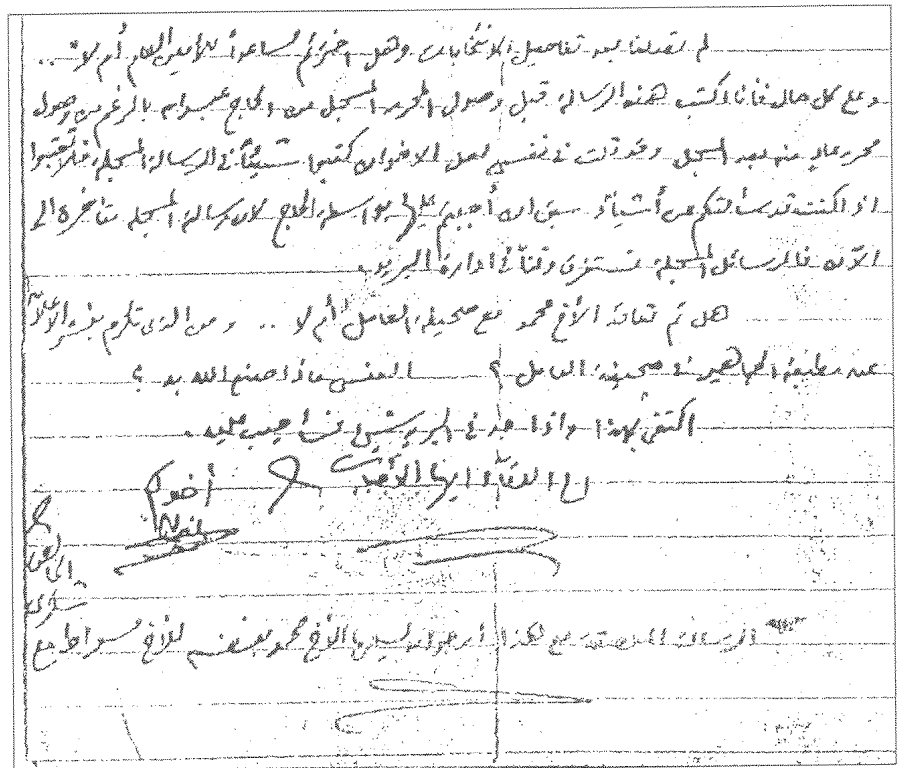 لم تصلنا بعد تفاصيل الانتخابات وهل اخترتم مساعداً للأمين العام أم لا ..
وعلى كل حال فأنا أكتب هذه الرسالة قبل وصول المحرر المسجل من الحاج بالرغم من وصول
محرر عادي منه بعد المسجل وقد قلت في نفسي لعل الاخوان كتبوا شيئاً في الرسالة المسجلة فلا تعجبوا
اذا كنت قد سألتكم عن أشياء سبق ان أجبتم عليها بواسطة الحاج لان الرسالة المسجلة متأخرة الى
الآن فالرسائل المسجلة تستغرق وقتاً في ادارة البريد.
هل تم تعاقد الأخ محمد مع صحيفة العامل أم لا .. ومن الذي تكرم بنشر الاعلان
عن مطبعة الجماهير في صحيفة العامل ؟ العفس ماذا صنع الله به ؟
اكتفي بهذا واذا جد في البريد شيء فسأجيب عليه.
الى اللقاء ايها الأحبة
أخوكم
الرسالة الملصقة مع هكذا أرجو ان يسلمها الأخ محمد بنفسه للأخ مع